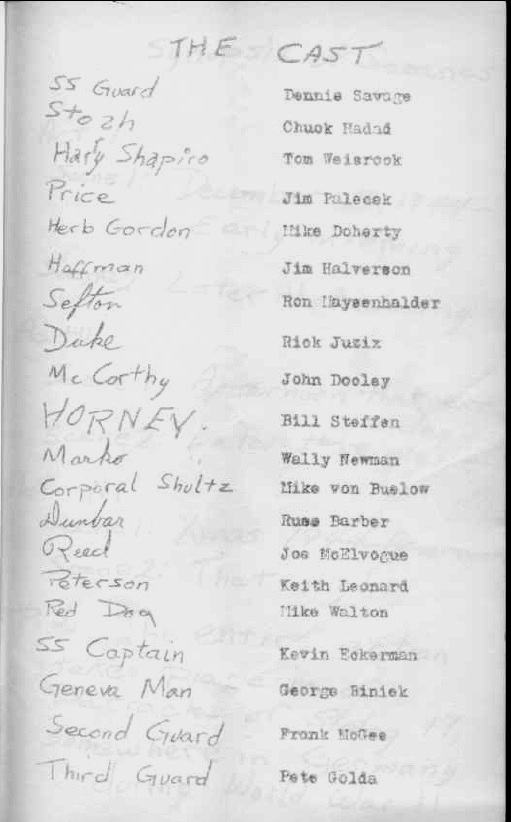 THE CAST
SS Guard Dennie Savage
Stosh Chuck Hadad
Harry Shapiro Tom Weisrock
Price Jim Palecek
Herb Gordon Mike Doherty
Hoffman Jim Halverson
Sefton Ron Maysenhalder
Duke Rick Juzix
Mc Corthy John Dooley
HORNEY. Bill Steffen
Marko Wally Newman
Corporal Shultz Mike von Buelow
Dunbar Russ Barber
Reed Joe McElvogue
Peterson Keith Leonard
Red Dog Mike Walton
SS Captain Kevin Eckerman
Geneva Man George Biniek
Second Guard Frank McGee
Third Guard Pete Golda